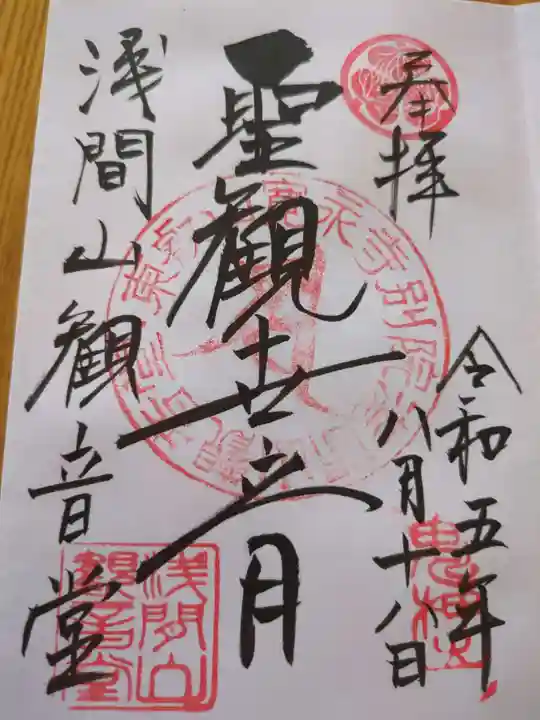 奉拝
令和五年
八月十八日
聖観世音
浅間山観音堂
鬼押
浅間山
観音堂